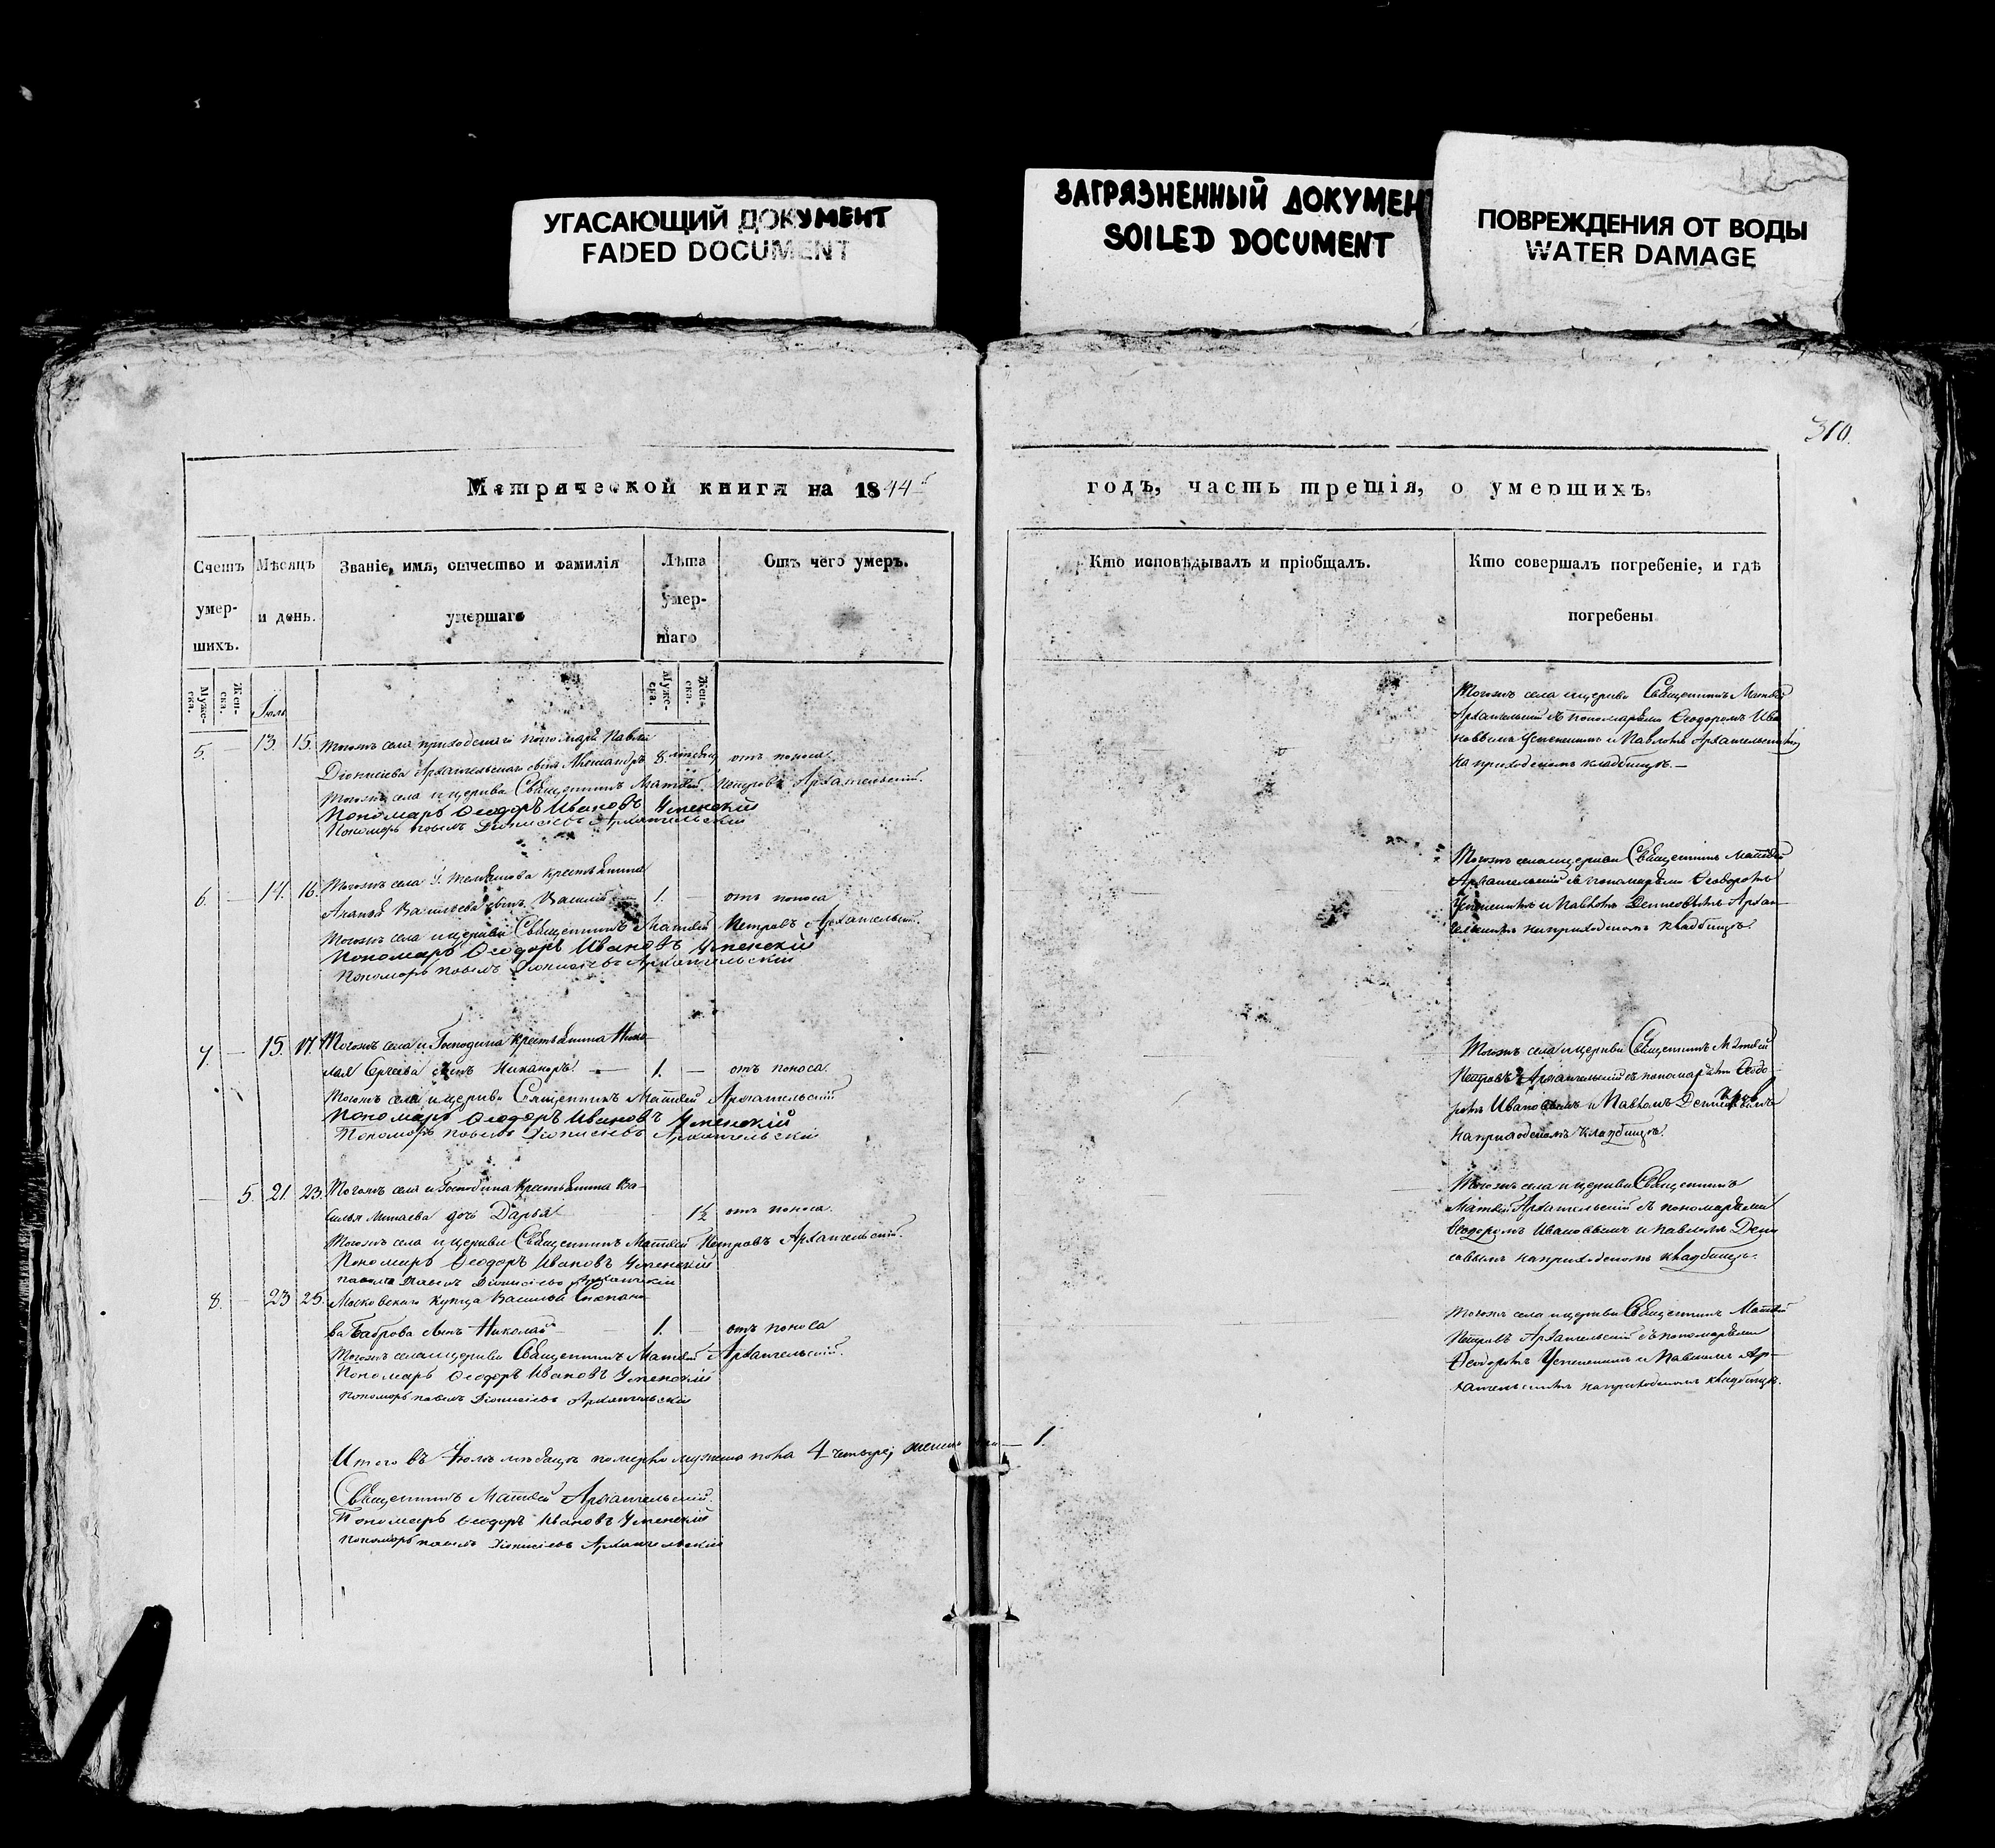 УГАСАЮЩИЙ ДОКУМЕНТ
FADED DOCUMENT
ЗАГРЯЗНЕННЫЙ ДОКУМЕН
SOILED DOCUMENT
ПОВРЕЖДЕНИЯ ОТ ВОДЫ
WATER DAMAGE
310.
Метрической книги на 1844
годъ, часть третія, о умершихъ.
Счетъ умер- шихъ.
Мѣсяцъ и день.
Званіе, имя, отчество и фамилія
умершаго
Лѣта умер- шаго
Отъ чего умеръ.
Кто исповѣдывалъ и пріобщалъ.
Кто совершалъ погребеніе, и гдѣ
погребены
Муже- ска.
Жен- ска.
Муже- ска.
Жен- ска.
Іюль
5. — 13. 15. Тогожъ села приходскаго пономаря Павла
Діонисіева Архангельскаго сынъ Александръ 8. отъ поноса.
Тогожъ села и церкви Священникъ Матвей Петровъ Архангельский.
Пономарь Ѳеодоръ Ивановъ Успенскій
Пономарь Павелъ Діонисіевъ Архангельскій
Тогожъ села и церкви Священникъ Матвей
Архангельский съ пономарями Ѳеодоромъ Ива
новымъ Успенскимъ и Павломъ Архангельскимъ
на приходскомъ кладбищѣ. —
6. — 14. 16. Тогожъ села Г. крестьянина
Василіева сынъ Василій 1. — отъ поноса
Тогожъ села и церкви Священникъ Матвей Петровъ Архангельский.
Пономарь Ѳеодоръ Ивановъ Успенскій
Пономарь Павелъ Діонисіевъ Архангельскій
Тогожъ села и церкви Священникъ Матвей
Архангельский съ пономарями Ѳеодоромъ
Успенскимъ и Павломъ Архан
гельскимъ на приходскомъ кладбищѣ.
7. — 15. 17. Тогожъ села и Господина крестьянина Нико
лая Сергеева сынъ Никаноръ. — 1. — отъ поноса.
Тогожъ села и церкви Священникъ Матвей Архангельский
Пономарь Ѳеодоръ Ивановъ Успенскій
Пономарь Павелъ Діонисіевъ Архангельскій
Тогожъ села и церкви Священникъ Матвей
Петровъ Архангельский съ пономарями Ѳеодо
ромъ Ивановымъ и Павломъ
на приходскомъ кладбищѣ.
— 5. 21. 23. Тогожъ села и Господина крестьянина Ва
силья Минаева дочь Дарья 1½ отъ поноса.
Тогожъ села и церкви Священникъ Матвей Петровъ Архангельский.
Пономарь Ѳеодоръ Ивановъ Успенскій
Павелъ Діонисіевъ
Тогожъ села и церкви Священникъ
Матвей Архангельский съ пономарями
Ѳеодоромъ Ивановымъ и Павломъ Дени
совымъ на приходскомъ кладбищѣ.
8. — 23 25. Московскаго купца Василья Степано
ва Боброва сынъ Николай — 1. — отъ поноса
Тогожъ села и церкви Священникъ Матвей Архангельский.
Пономарь Ѳеодоръ Ивановъ Успенскій
Пономарь Павелъ Діонисіевъ Архангельскій
Тогожъ села и церкви Священникъ Матвей
Петровъ Архангельский съ пономарями
Ѳеодоромъ Успенскимъ и Павломъ Ар
хангельскимъ на приходскомъ кладбищѣ.
Итого въ Іюлѣ мѣсяцѣ померло мужеска пола 4 четыре, — 1.
Священникъ Матвей Архангельский.
Пономарь Ѳеодоръ Ивановъ Успенскій
Пономарь Павелъ Діонисіевъ Архангельскій